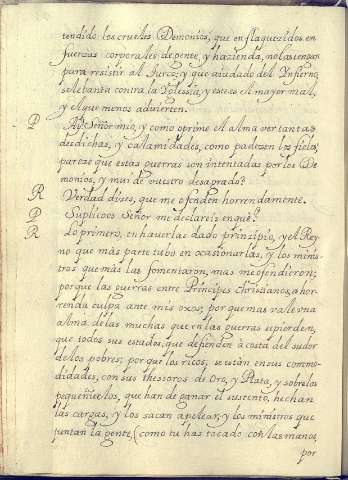 tendido los crueles Demonios, que en flaquezidos en
fuerzas corporales de gente, y hazienda, no las tengan
para resistir al Turco; y que aiudado del Ynfierno,
se lebanta contra la Yglesia, y este es el mayor mal,
y el que menos aduierten.
P Ay Señor mio, y como oprime el Alma ver tantas
desdichas, y calamidades, como padezen los fieles,
pareze que estas guerras son intentadas por los De
monios, y mui de vuestro desagrado?
R Verdad dizes, que me ofenden horrendamente.
P Suplicoos Señor me declareis en què?
R Lo primero, en hauerlas dado principio, y el Rey
no que más parte tubo en ocasionarlas, y los minis
tros que más las fomentaron, mas me ofendieron;
porque las guerras entre Principes christianos, es ho
rrenda culpa ante mis oxos; por que mas vale vna
Alma de las muchas que en las guerras se pierden,
que todos sus estados, que defienden à costa del sudor
de los pobres; por que los ricos, se están en sus como
didades, con sus thesoros de Oro, y Plata, y sobre los
pequeñuelos, que han de ganar el sustento, hechan
las cargas, y los sacan a pelear, y los ministros que
juntan la gente, (como tu has tocado con las manos,
por